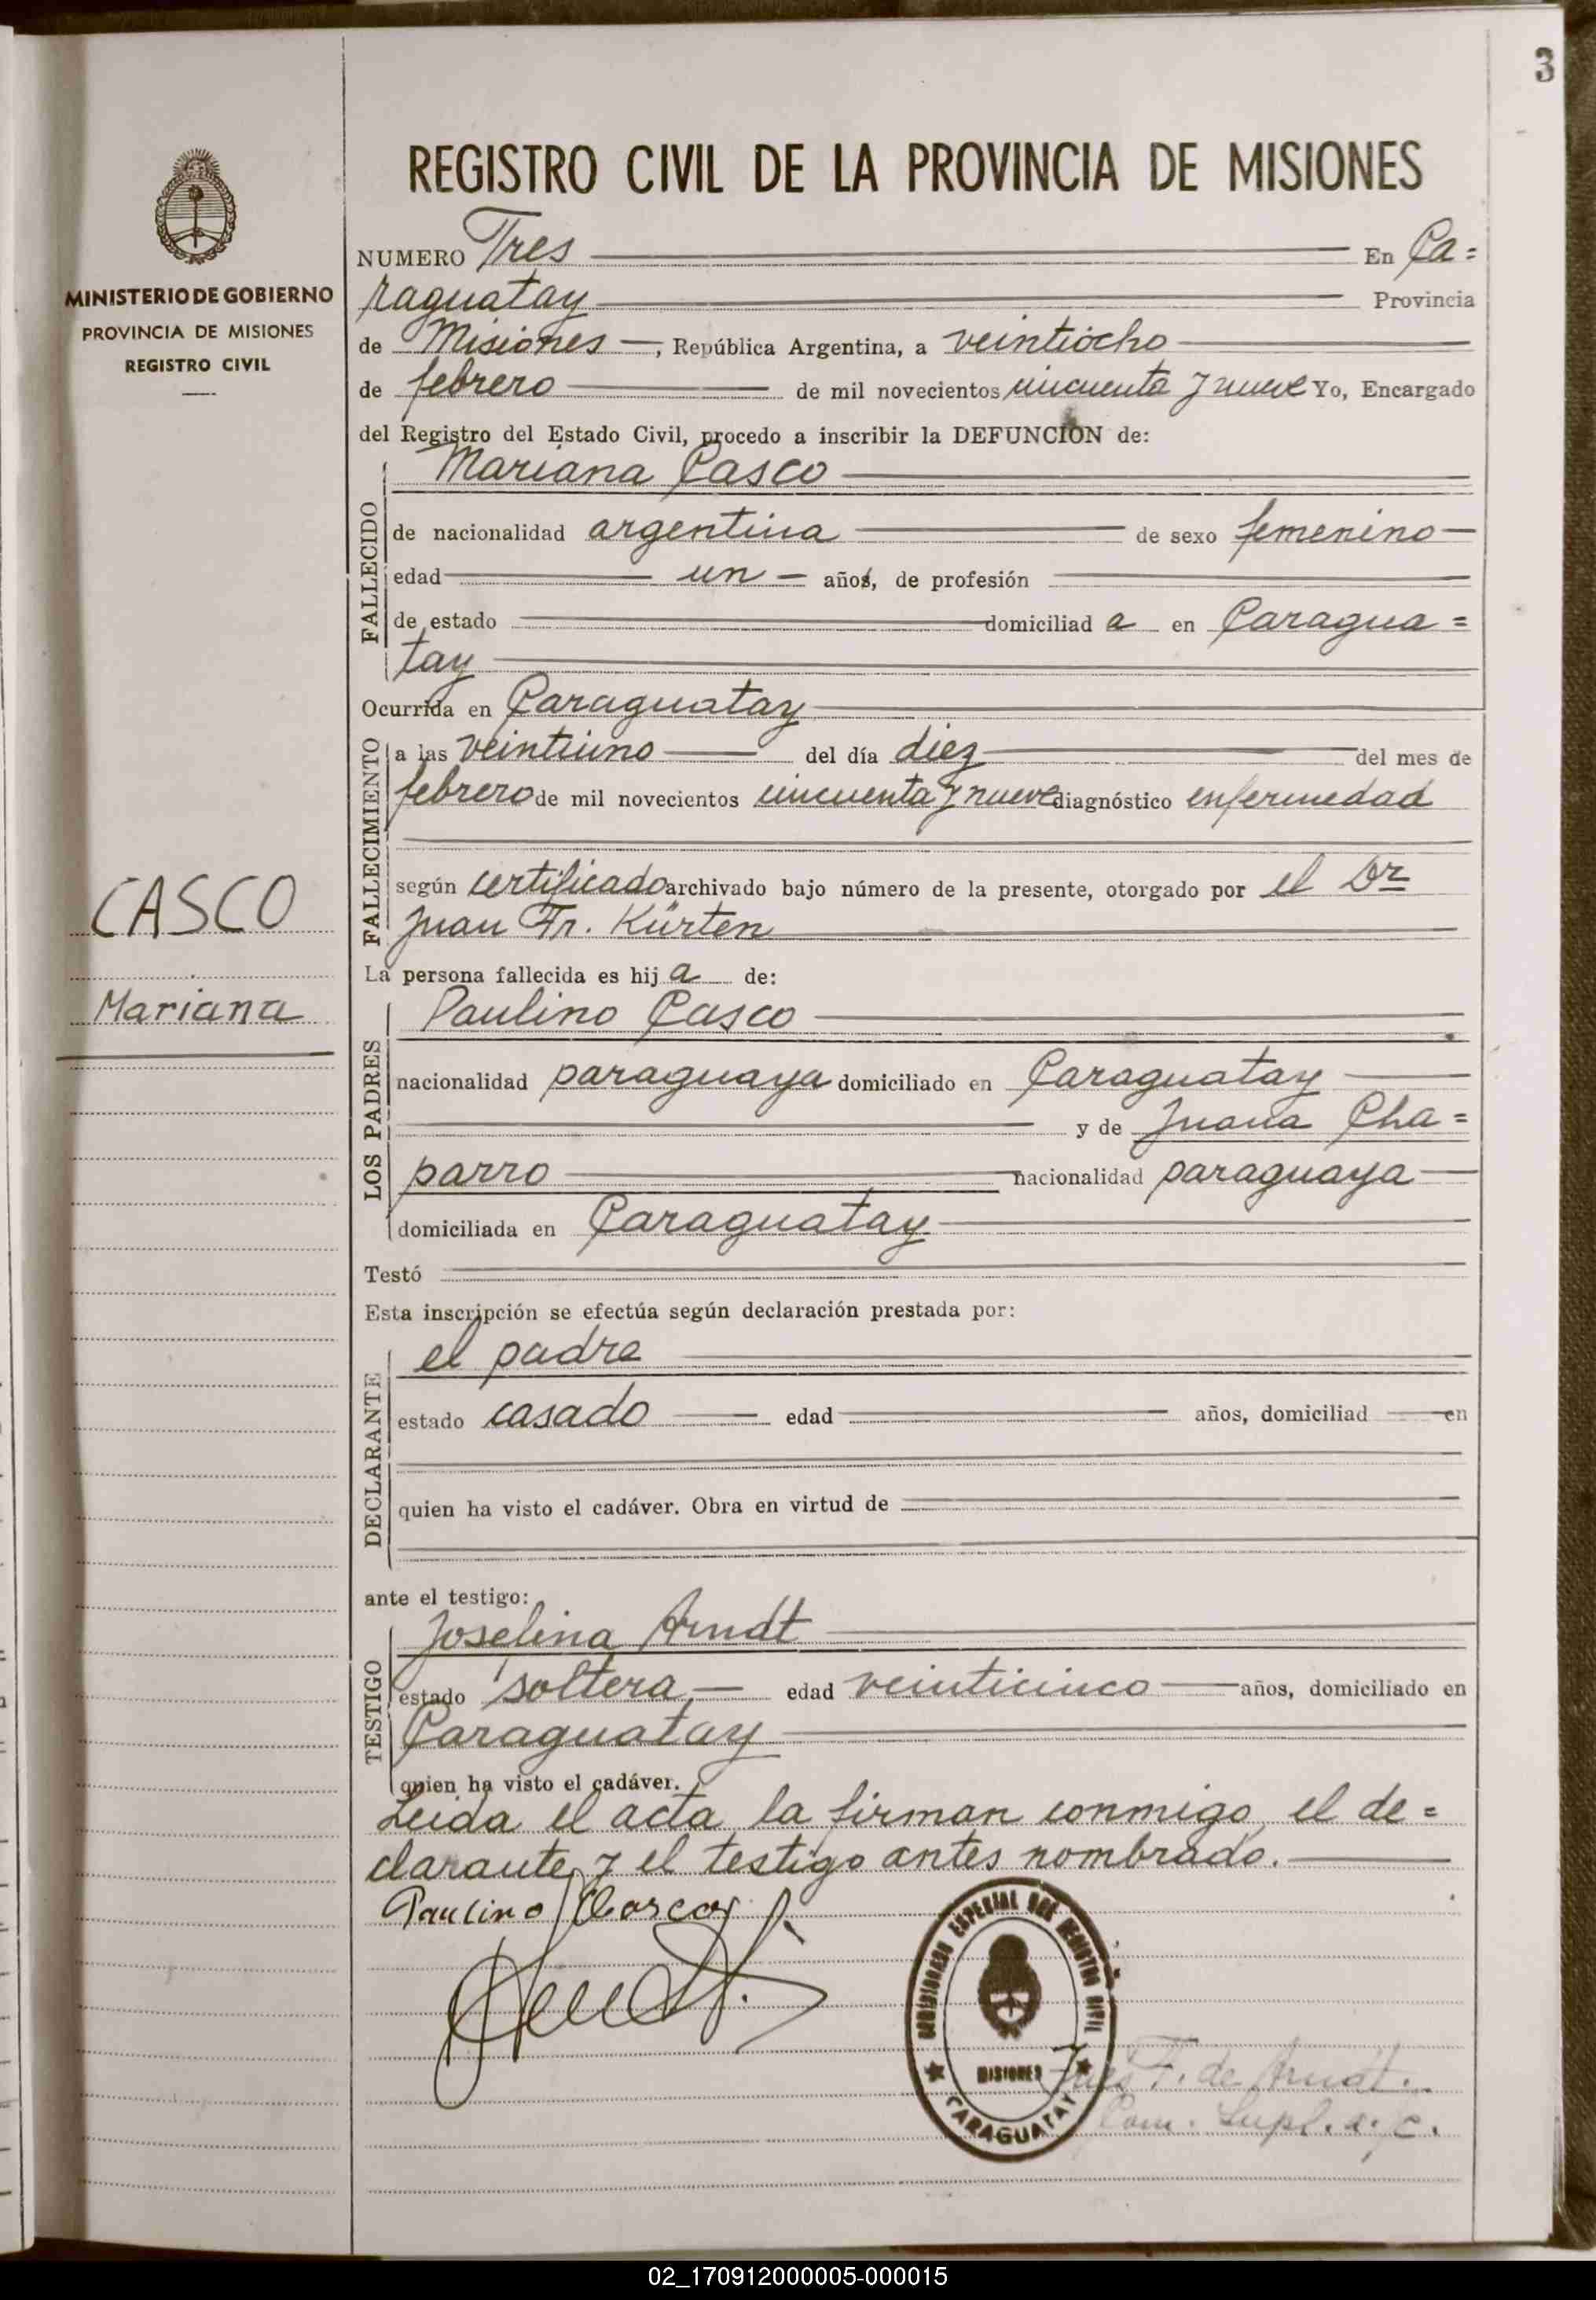 3
REGISTRO CIVIL DE LA PROVINCIA DE MISIONES
MINISTERIO DE GOBIERNO
PROVINCIA DE MISIONES
REGISTRO CIVIL
CASCO
Mariana
NUMERO Tres En Ca=
raguatay Provincia
de Misiones, República Argentina, a veintiocho
de febrero de mil novecientos cincuenta y nueve Yo, Encargado
del Registro del Estado Civil, procedo a inscribir la DEFUNCION de:
FALLECIDO
Mariana Casco
de nacionalidad argentina de sexo femenino
edad un años, de profesión
de estado domiciliad a en Caragua=
tay
Ocurrida en Caraguatay
FALLECIMIENTO
a las veintiuno del día diez del mes de
febrero de mil novecientos cincuenta y nueve diagnóstico enfermedad
según certificado archivado bajo número de la presente, otorgado por el Dr
Juan Fr. Kürten
La persona fallecida es hij a de:
LOS PADRES
Paulino Casco
nacionalidad paraguaya domiciliado en Caraguatay
y de Juana Cha=
parro nacionalidad paraguaya
domiciliada en Caraguatay
Testó
Esta inscripción se efectúa según declaración prestada por:
DECLARANTE
el padre
estado casado edad años, domiciliad en
quien ha visto el cadáver. Obra en virtud de
ante el testigo:
TESTIGO
Joselina Arndt
estado soltera edad veinticinco años, domiciliado en
Caraguatay
quien ha visto el cadáver.
Leida el acta, la firman conmigo, el de=
clarante, y el testigo antes nombrado.
Paulino Casco
ESPECIAL DEL REGISTRO CIVIL
MISIONES
CARAGUATAY
F. de Arndt.
Com. Supl. a. c.
02_170912000005-000015